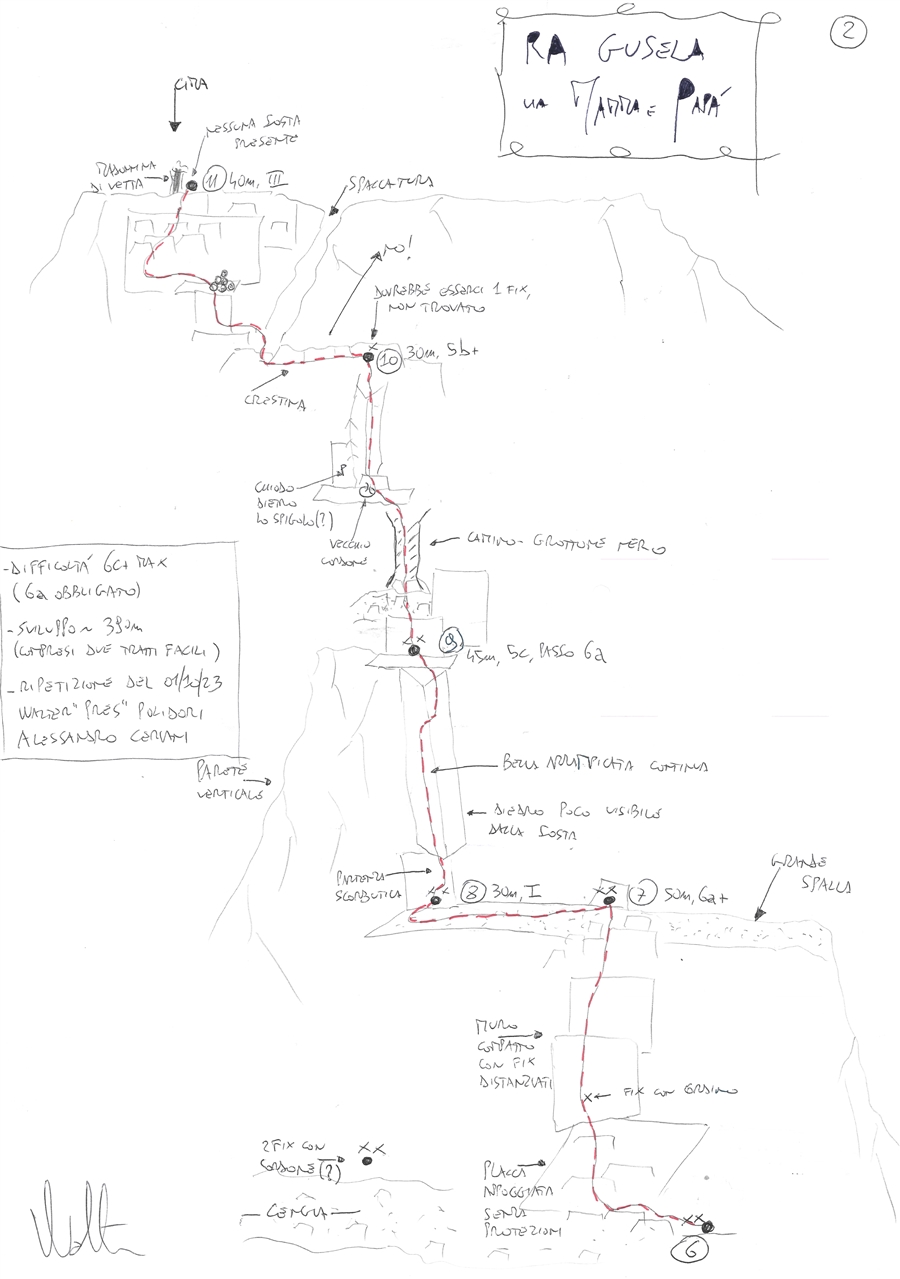 2
RA GUSELA
VIA MAMMA E PAPÁ
CIMA
NESSUNA SOSTA
PRESENTE
MADONNINA
DI VETTA
11 40m, III
SPACCATURA
NO!
DOVREBBE ESSERCI 1 FIX,
NON TROVATO
10 30m, 5b+
CRESTINA
CHIODO
DIETRO
LO SPIGOLO(?)
VECCHIO
CORDONE
CAMINO-GROTTONE NERO
9 45m, 5c, PASSO 6a
- DIFFICOLTÁ 6c+ MAX
(6a OBBLIGATO)
- SVILUPPO ~ 390m
(COMPRESI DUE TRATTI FACILI)
- RIPETIZIONE DEL 01/10/23
WALTER "PRES" POLIDORI
ALESSANDRO CERIANI
PARETE
VERTICALE
BELLA ARRAMPICATA CONTINUA
DIEDRO POCO VISIBILE
DALLA SOSTA
PARTENZA
SCORBUTICA
8 30m, I
7 50m, 6a+
GRANDE
SPALLA
MURO
COMPATTO
CON FIX
DISTANZIATI
FIX CON CORDINO
2 FIX CON
CORDONE(?)
CENGIA
PLACCA
APPOGGIATA
SENZA
PROTEZIONI
6